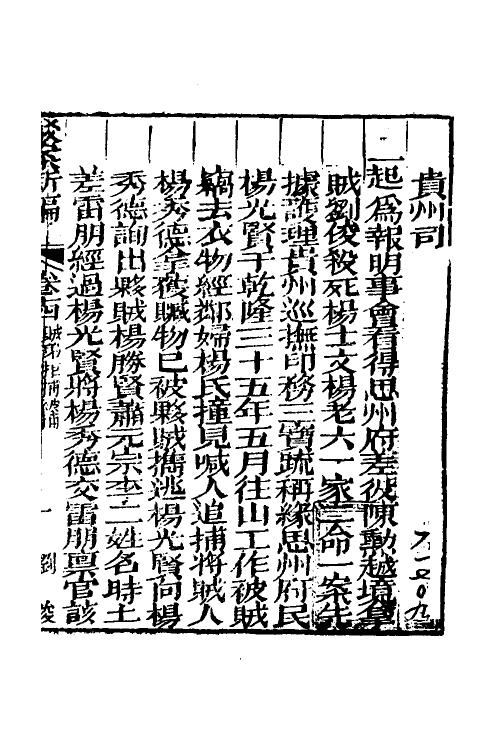 貴州司
一起爲報明事會看得思州府差役陳勳越境拿
賊劉俊殺死楊士文楊老六一家三命一案先
據護理貴州巡撫印務三寶疏稱緣思州府民
楊光賢于乾隆三十五年五月往山工作被賊
竊去衣物經鄰婦楊氏撞見喊人追捕將賊人
楊秀德拿獲贓物已被夥賊攜逃楊光賢向楊
秀德詢出夥賊楊勝賢蕭元宗李二姓名時土
差雷朋經過楊光賢將楊秀德交雷朋稟官該
新編 卷
一 劉俊